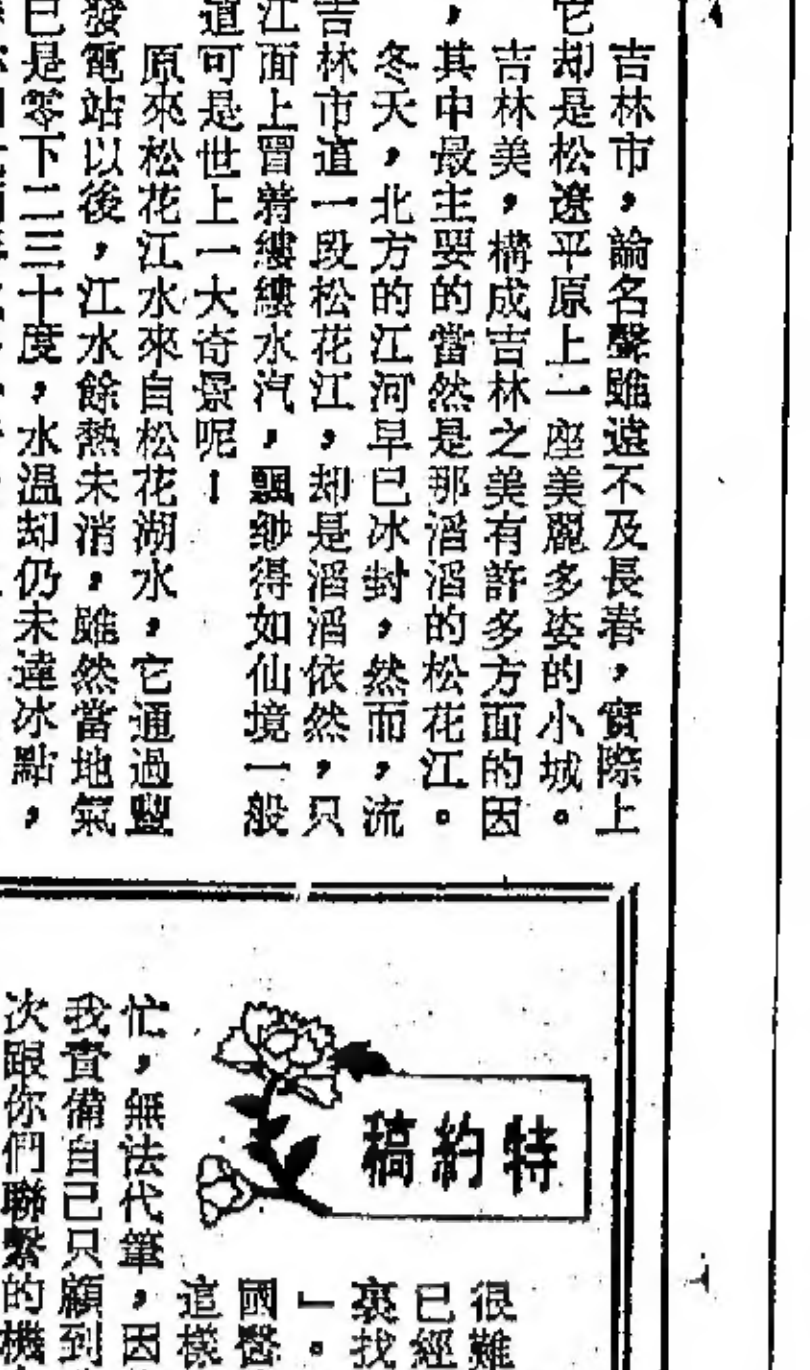 吉林市，論名聲雖遠不及長春，實際上
它却是松遼平原上一座美麗多姿的小城。
吉林美，構成吉林之美有許多方面的因
，其中最主要的當然是那滔滔的松花江。
冬天，北方的江河早已冰封，然而，流
吉林市道一段松花江，却是滔滔依然，只
江面上冒着縷縷水汽，飄緲得如仙境一般
道可是世上一大奇景呢！
原來松花江水來自松花湖水，它通過豐
發電站以後，江水餘熱未消，雖然當地氣
已是零下二三十度，水温却仍未達冰點，
特約稿
很難
已經
裏找
」。
國醫
這樣
忙，無法代筆，因
我責備自己只顧到
次跟你們聯繫的機